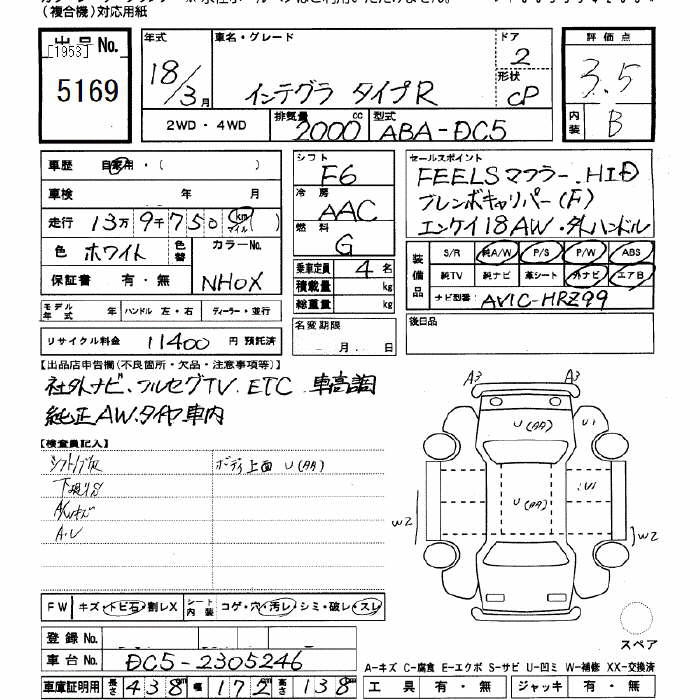 (複合機)対応用紙
出品No.
[1953]
5169
年式
18/3月
車名・グレード
インテグラ タイプR
ドア
2
形状
CP
評価点
3.5
内装
B
2WD・4WD
排気量 2000 cc
型式 ABA-DC5
車歴 自家用・( )
車検 年 月
走行 13万9千750 km マイル
色 ホワイト 色替 カラーNo. NH0X
保証書 有・無
モデル年式 年 ハンドル 左・右 ディーラー・並行
リサイクル料金 11400 円 預託済
シフト F6
冷房 AAC
燃料 G
乗車定員 4 名
積載量 kg
総重量 kg
名変期限
月 日
セールスポイント
FEELSマフラー.HID
ブレンボキャリパー(F)
エンケイ18AW・外ハンドル
装備品
S/R 純A/W P/S P/W ABS
純TV 純ナビ 革シート 外ナビ エアB
ナビ型番 AVIC-HRZ99
後日品
【出品店申告欄(不良箇所・欠品・注意事項等)】
社外ナビ.フルセグTV.ETC.車高調
純正AW.タイヤ車内
【検査員記入】
ボディ上面 U(AA)
下廻りS
A.U
A3 A3
U(AA) U1
U(AA) U1
W2 W2
スペア
FW キズ・トビ石・割レX シート内装 コゲ・穴・汚レ・シミ・破レ・スレ
登録No.
車台No. DC5-2305246
車庫証明用 長さ 438 cm 幅 172 cm 高さ 138 cm
A-キズ C-腐食 E-エクボ S-サビ U-凹ミ W-補修 XX-交換済
工具 有・無 ジャッキ 有・無